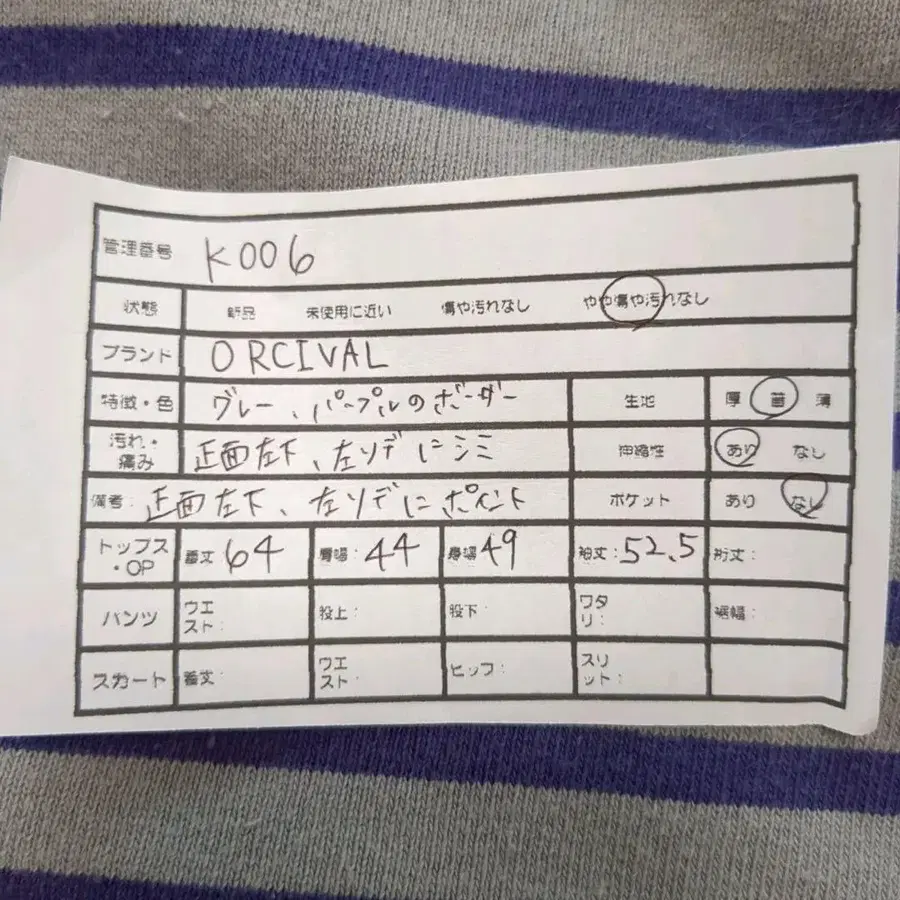 管理番号 K006
状態 新品 未使用に近い 傷や汚れなし やや傷や汚れなし
ブランド ORCIVAL
特徴・色 グレー、パープルのボーダー 生地 厚 普 薄
汚れ・痛み 正面左下、左ソデにシミ 伸縮性 あり なし
備考: 正面左下、左ソデにポイント ポケット あり なし
トップス・OP 着丈 64 肩幅: 44 身幅 49 袖丈: 52.5 裄丈:
パンツ ウエスト: 股上: 股下: ワタリ: 裾幅:
スカート 着丈: ウエスト: ヒップ: スリット: